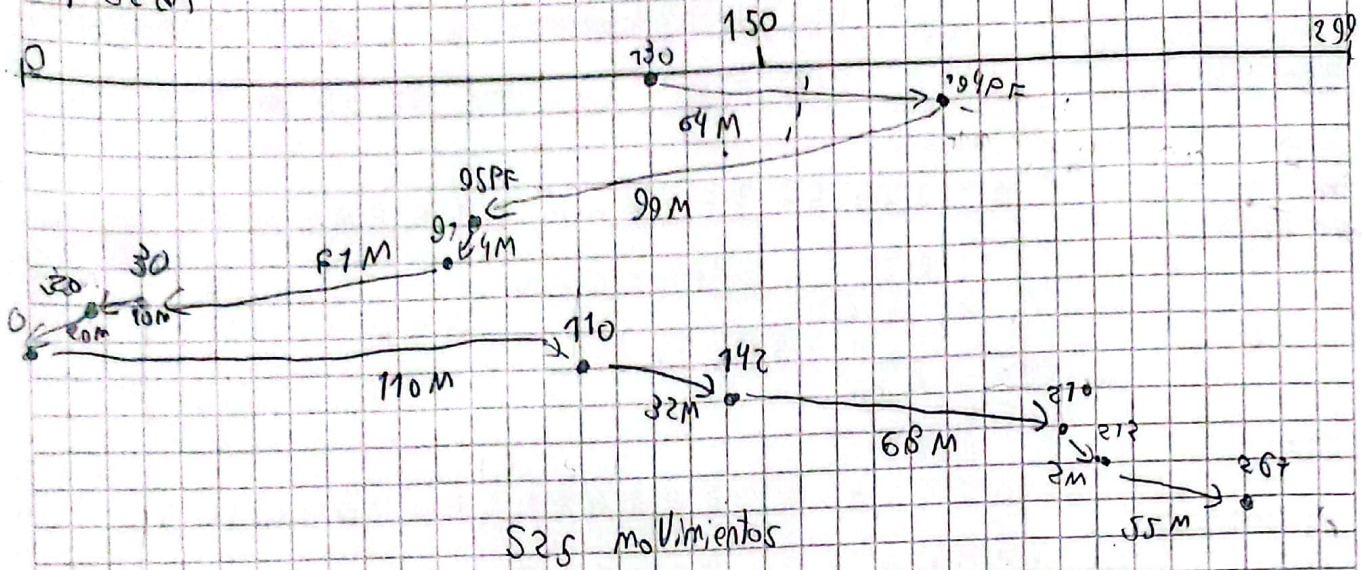 0 150 299
130 194PF
64M
95PF
99M
91 4M
61M
30
20
10M
0 20M
110
110M
142
32M
210
68M
212
2M
267
55M
525 movimientos